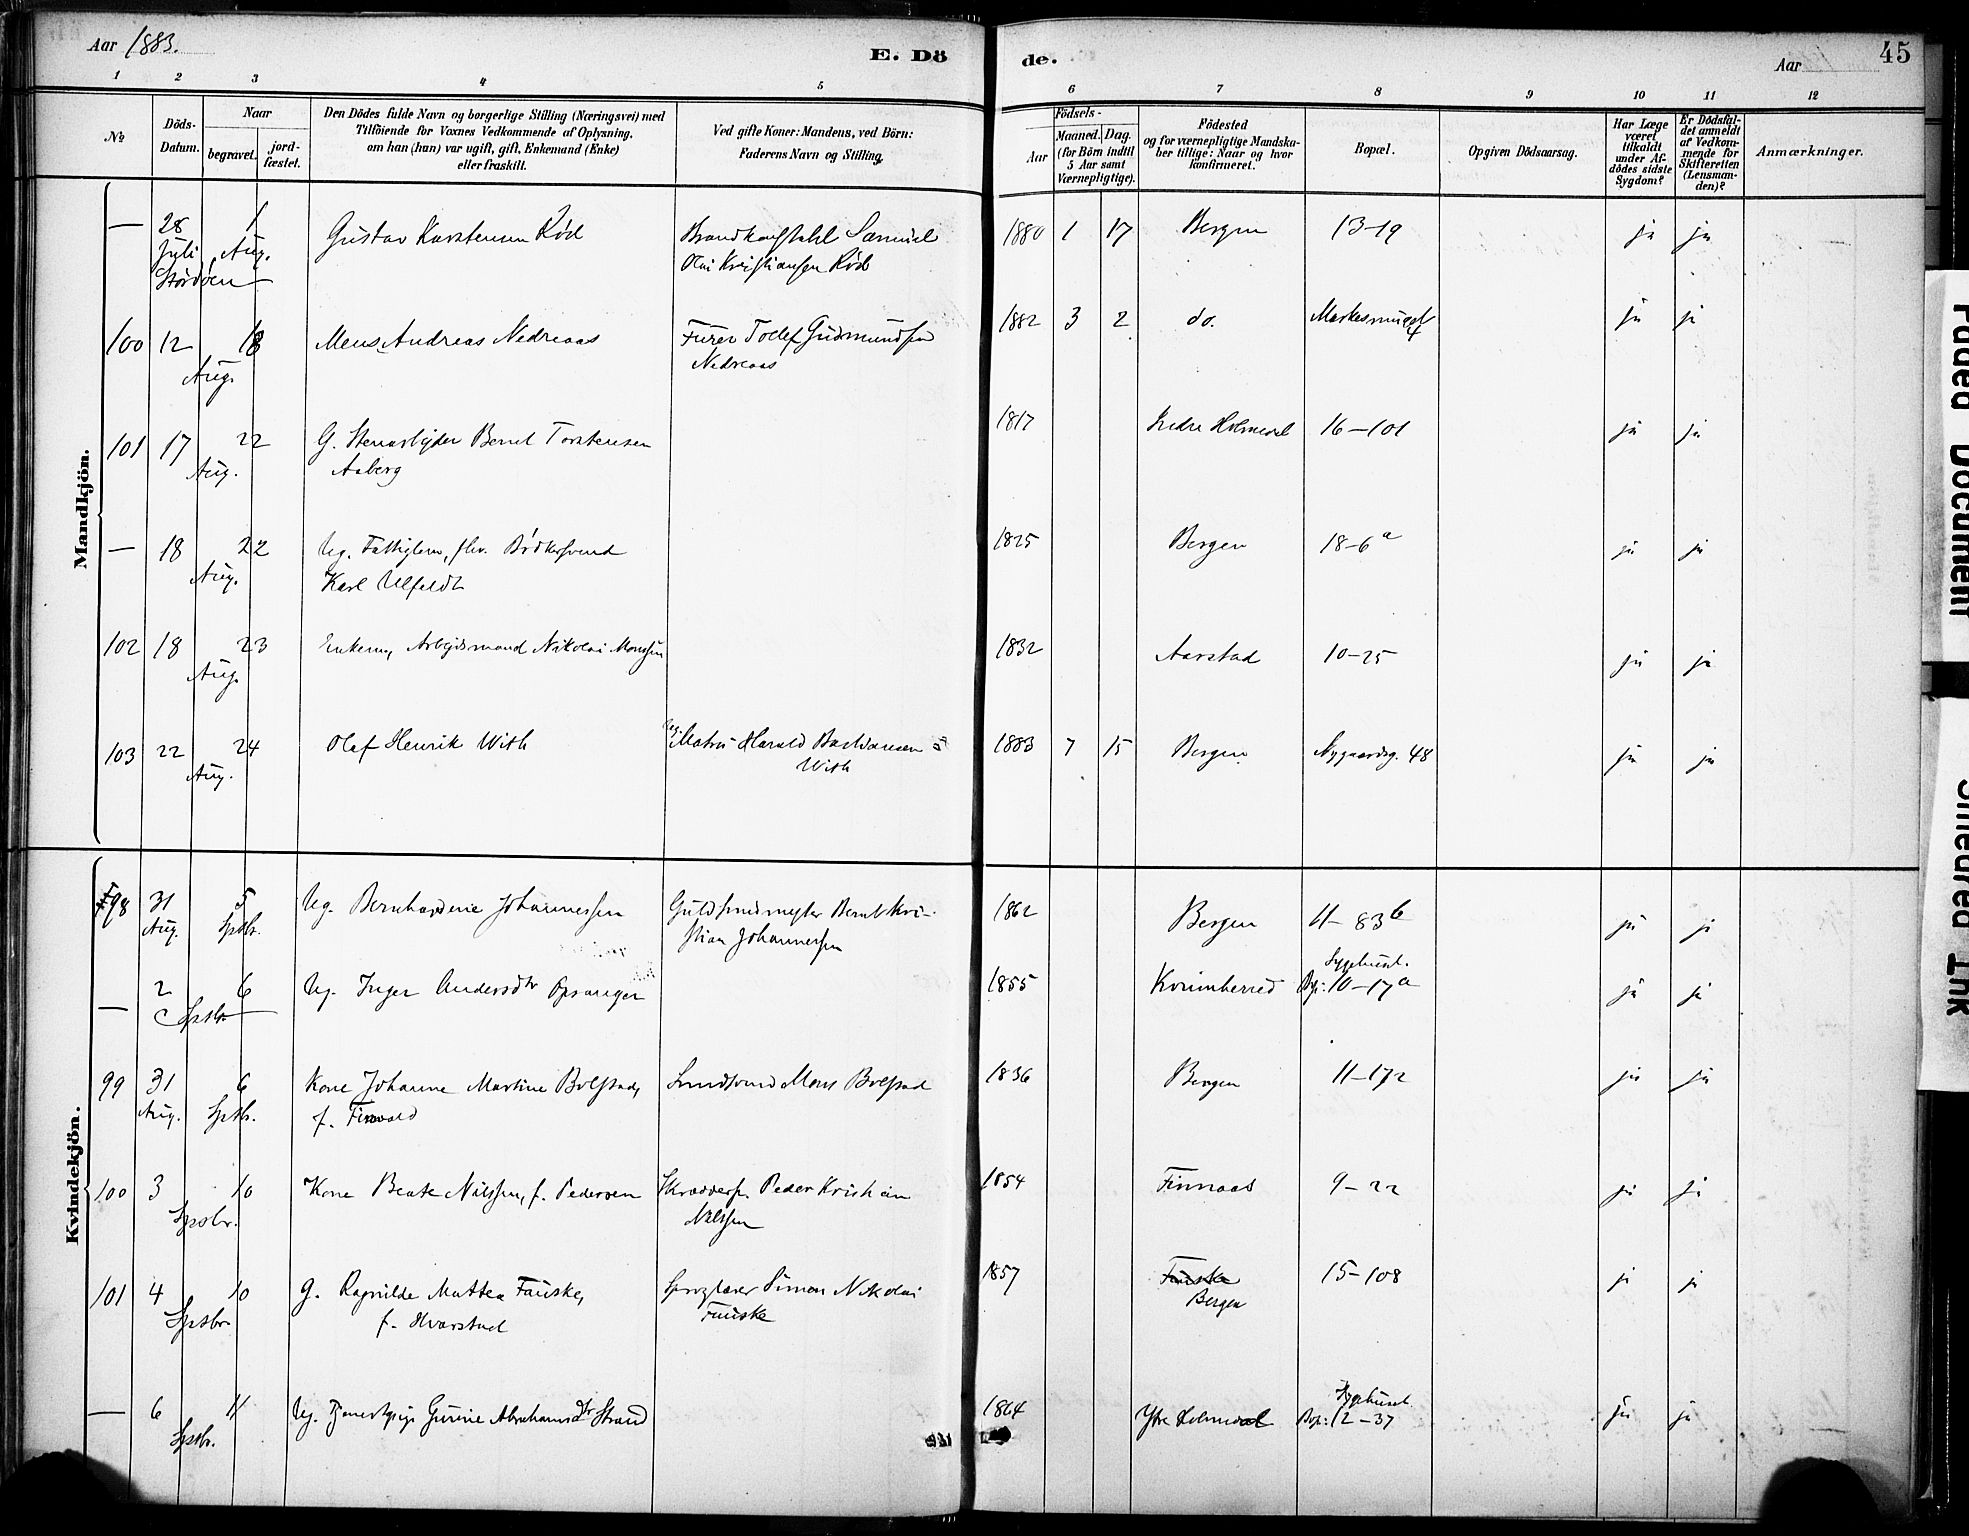 Aar 1883.
E. Dö
de.
Aar
45
1 2 3 4 5 6 7 8 9 10 11 12
№
Döds-
Datum.
Naar
begravet.
jord-
fæstet.
Den Dödes fulde Navn og borgerlige Stilling (Næringsvei) med
Tilföiende for Voxnes Vedkommende af Oplysning,
om han (hun) var ugift, gift, Enkemand (Enke)
eller fraskilt.
Ved gifte Koner: Mandens, ved Börn:
Faderens Navn og Stilling.
Födsels-
Aar
Maaned.
Dag.
(for Börn indtil
5 Aar samt
Værnepligtige).
Födested
og for værnepligtige Mandska-
ber tillige: Naar og hvor
konfirmeret.
Bopæl.
Opgiven Dödsaarsag.
Har Læge
været
tilkaldt
under Af-
dödes sidste
Sygdom?
Er Dödsfal-
det anmeldt
af Vedkom-
mende for
Skifteretten
(Lensman-
den)?
Anmærkninger.
Mandkjön.
— 28 1 Gustav Karstensen Rød Samuel 1880 1 17 Bergen 13-19 ja ja
Juli Aug. Olai Kristiansen Rød
100 12 18 Mens Andreas Nedreaas Furer Tollef Gudmundsen 1882 3 2 do. ja ja
Aug. Nedreaas
101 17 22 G. Stenarbejder Bernt Torstensen 1817 Indre Holmedal 16-101 ja ja
Aug. Aaberg
— 18 22 Ug. Fattiglem, fhv. Bødkersvend 1825 Bergen 18-6a ja ja
Aug. Karl Ulfeldt
102 18 23 Enkem, Arbejdsmand Nikolai Monsen 1832 Aarstad 10-25 ja ja
Aug.
103 22 24 Olaf Henrik With Matros Harald 1883 7 15 Bergen Nygaardsg. 48 ja ja
Aug. With
Kvindekjön.
98 31 5 Ug. Bernhardine Johannessen Guldsmedmester Bernt Kri- 1862 Bergen 11-83b ja ja
Aug. Sptbr. stian Johannessen
— 2 6 Ug. Inger Andersdtr Opsanger 1855 Kvinnherred Sygehuset.
Sptbr. Bop: 10-17a ja ja
99 31 6 Kone Johanne Martine Bolstad, Smedsvend Mons Bolstad 1836 Bergen 11-172 ja ja
Aug. Sptbr. f.
100 3 10 Kone Beate Nilssen, f. Pedersen Skræddersv. Peder Kristian 1854 Finnaas 9-22 ja ja
Sptbr. Nilssen
101 4 10 G. Ragnilde Mattea Fauske, Sproglærer Simon Nikolai 1857 Fauske 15-108 ja ja
Sptbr. f. Hvarstad Fauske Bergen
— 6 11 Ug. Tjenestepige Gurine Abrahamsdtr Strand 1864 Ytre Holmedal Sygehuset
Sptbr. Bop: 12-37 ja ja
Faded Document
Smeared Ink